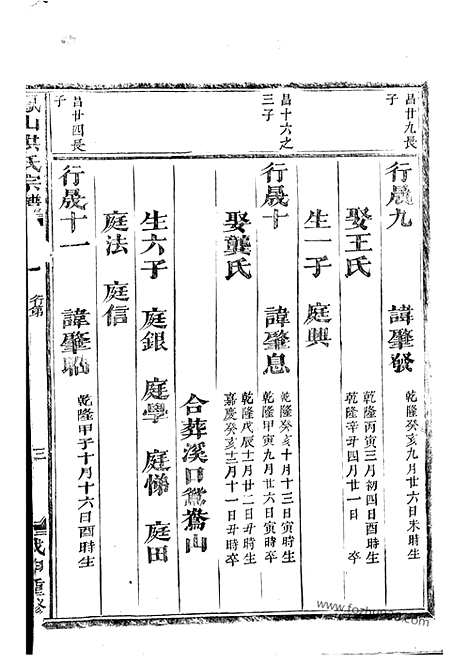 昌廿九長子
行晟九 諱肇發 乾隆癸亥九月廿六日未時生
娶王氏 乾隆丙寅三月初四日酉時生
乾隆辛丑四月廿一日 卒
生一子 庭興
昌十六之三子
行晟十 諱肇息 乾隆癸亥十月十三日寅時生
乾隆甲寅九月廿六日寅時卒
娶龔氏 乾隆戊辰十一月廿二日丑時生
嘉慶癸亥十二月十一日丑時卒
合葬溪口鴛鴦山
生六子 庭銀 庭學 庭悌 庭田
庭法 庭信
昌廿四長子
行晟十一 諱肇 乾隆甲子十月十六日酉時生
鳳山洪氏宗譜
行第
三
戊申重修
www.fozhu920.com